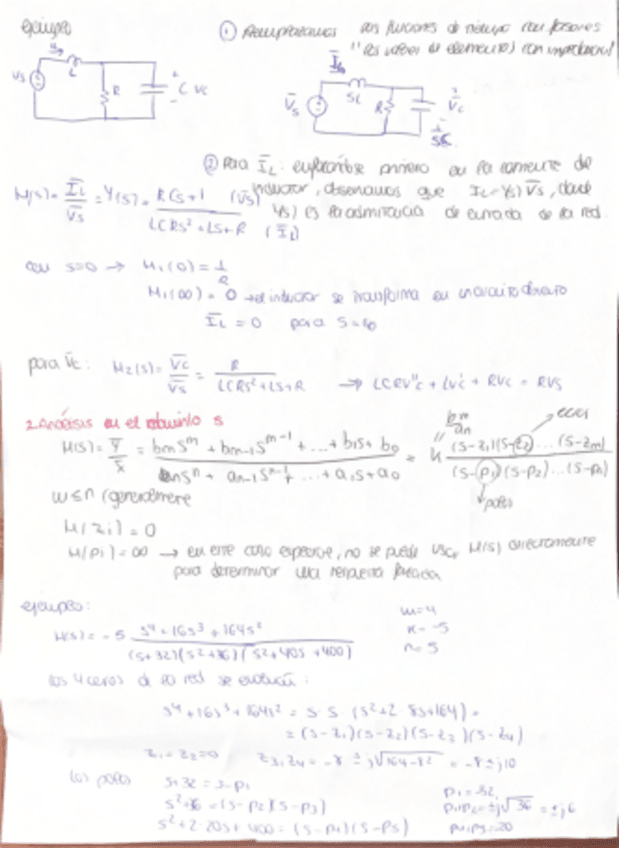 ejemplo
① Reemplazamos las funciones de tiempo con fasores
" los valores de elementos) con impedancia)
Vs L R C Vc
V̄s Ī_L SL R V̄c 1/SC
② Para Ī_L: enfocándose primero en la corriente de
inductor, observamos que I_L = Y(s) V̄s, donde
Y(s) es la admitancia de entrada de la red.
H(s) = Ī_L/V̄s = Y(s) = (RCs+1)/(LCRs²+Ls+R) (V̄s) (Ī_L)
con s=0 → H₁(0) = 1/R
H₁(∞) = 0 → el inductor se transforma en un circuito abierto
Ī_L = 0 para s=∞
para V̄c: H₂(s) = V̄c/V̄s = R/(LCRs²+Ls+R) → LCRV''c + LV'c + RVc = RVs
2. Análisis en el dominio s
H(s) = Y/X = (bm s^m + bm-1 s^m-1 + ... + b1s + b0)/(an s^n + an-1 s^n-1 + ... + a1s + a0) = K (s-z1)(s-z2)...(s-zm)/(s-p1)(s-p2)...(s-pn)
bm/an
ceros
polos
m ≤ n (generalmente
H(zi) = 0
H(pi) = ∞ → en este caso especial, no se puede usar H(s) directamente
para determinar una respuesta forzada
ejemplo:
H(s) = -5 (s⁴+16s³+164s²)/((s+32)(s²+36)(s²+40s+400))
m=4
K=-5
n=5
los 4 ceros de la red se :
s⁴+16s³+164s² = s·s·(s²+2·8s+164) =
= (s-z1)(s-z2)(s-z3)(s-z4)
z1=z2=0 z3,z4 = -8 ± j√(164-8²) = -8±j10
los polos s+32 = s-p1
s²+36 = (s-p2)(s-p3)
s²+2·20s+400 = (s-p4)(s-p5)
p1=-32
= ±j√36 = ±j6